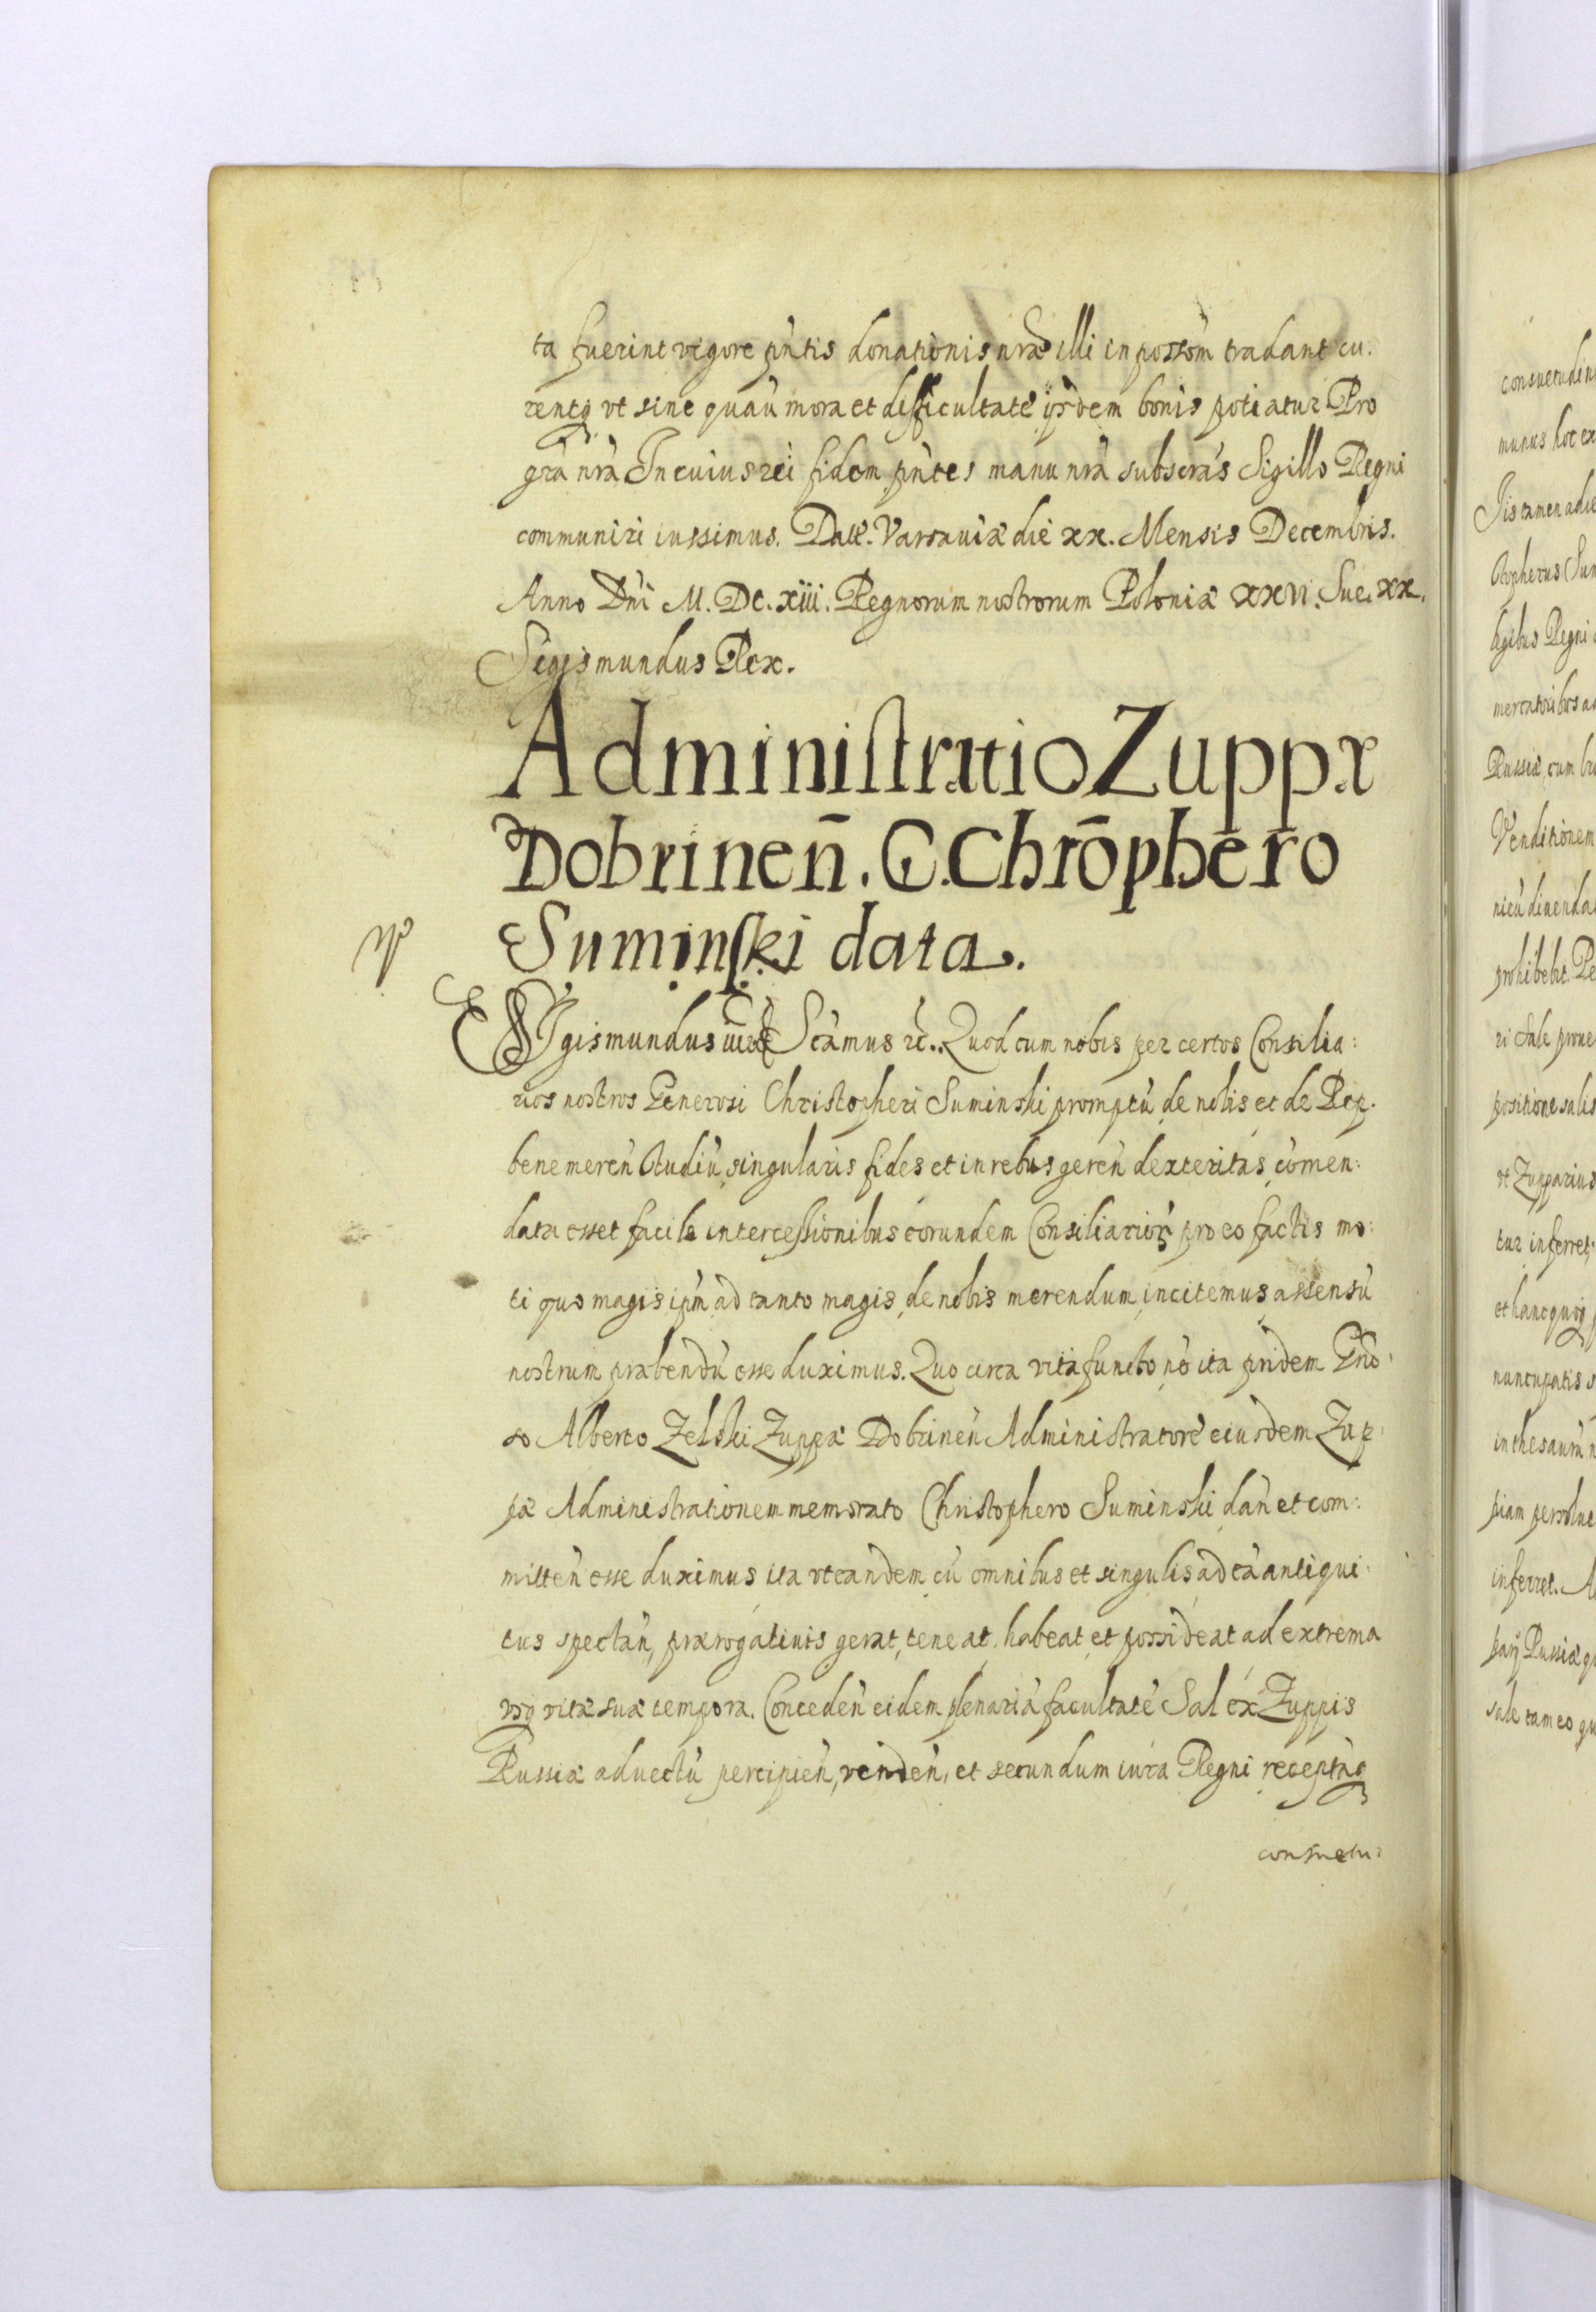 ta fuerint vigore pńtis donationis nræ illi in possōm tradant cu:
rentq̨ vt sine quaū mora et difficultatē ijsdem bonis potiatur Pro
grā nrā In cuius rei fidem pńtes manu nrā subscrās Sigillo Regni
communiri iussimus. Datt. Varsauiæ die xx. Mensis Decembris.
Anno Dńi M. DC. xiii. Regnorum nostrorum Poloniæ XXVI. Sue. XX.
Sigismundus Rex.
Administratio Zuppæ
Dobrinen̄. G. Chrōphero
Suminski data.
SIgismundus iii Scāmus &c. Quod cum nobis per certos Consilia:
rios nostros Generosi Christopheri Suminski promptū de nobis et de Rep.
bene meren̄ studiū, singularis fides et in rebus geren̄ dexteritas cōmen:
data esset facile intercessionibus eorundem Consiliarioꝝ pro eo factis mo:
ti quo magis ipm̄ ad tanto magis de nobis merendum incitemus assensū
nostrum præbendū esse duximus. Quo circa vita functo nō ita pridem Gnō:
so Alberto Zelski Zuppæ Dobrinen̄ Administratore eiusdem Zup:
pæ Administrationem memorato Christophero Suminski dan̄ et com:
mitten̄ esse duximus ita vt eandem cū omnibus et singulis ad eā antiqui:
tus spectan̄, prærogatiuis gerat, teneat, habeat et possideat ad extrema
vsq̨ vitæ suæ tempora. Conceden̄ eidem plenariā facultatē Sal ex Zuppis
Russiæ aduectū percipien̄, venden̄, et secundum iura Regni receptasq̨
consuetu:
consuetudin
munus hoc ex
legibus Regni
mercatoribus a
Russiæ, cum
Venditionem
nicū diuenda
prohibebit.
ri Sale proue
positione salis
vt Zupparius
tur inferret,
et hanc quoq̨
nuncupatis
in thesaurū n
piam persolue
inferret.
Russiæ
sale tam eo qu